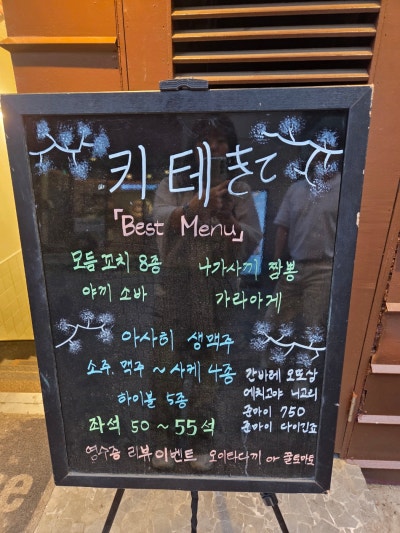 키테 きて
「Best Menu」
모듬 꼬치 8종 나가사끼 짬뽕
야끼 소바 가라아게
아사히 생맥주
소주. 맥주 ~ 사케 4종
하이볼 5종
좌석 50 ~ 55석
간바레 오또상
에치고야 니고리
쥰마이 750
쥰마이 다이긴죠
영수증 리뷰 이벤트 오이타다끼 or 꿀토마토